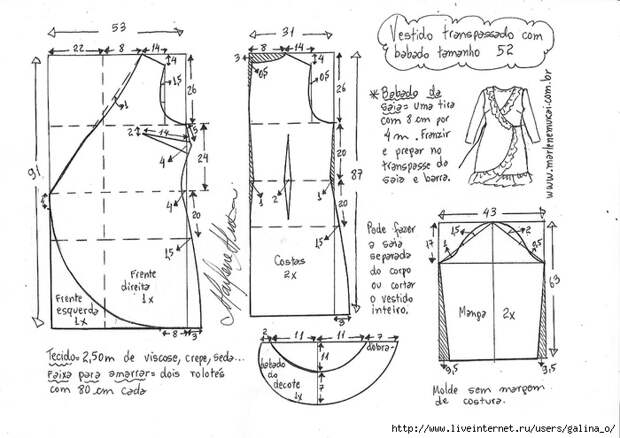 Vestido transpassado com
babado tamanho 52
* Babado da
saia = uma tira
com 8 cm por
4 m. Franzir
e prepar no
transpasse da
saia e barra.
www.marlenemukai.com.br
53
22
8
14
4
15
26
1
2
14
15
4
24
91
4
4
20
Frente
direita
1x
Frente
esquerda
1x
8
3
31
8
14
3
0,5
4
0,5
26
20
87
1
2
1
20
1,5
Costas
2x
3
Pode fazer
a saia
separada
do corpo
ou cortar
o vestido
inteiro.
43
17
1,5
2
1
0,5
63
Manga 2x
3,5
3,5
Molde sem margem
de costura.
2
11
11
7
11
7
dobra
babado
do
decote
1x
Tecido = 2,50 m de viscose, crepe, seda...
Faixa para amarrar = dois rolotês
com 80 cm cada
http://www.liveinternet.ru/users/galina_o/